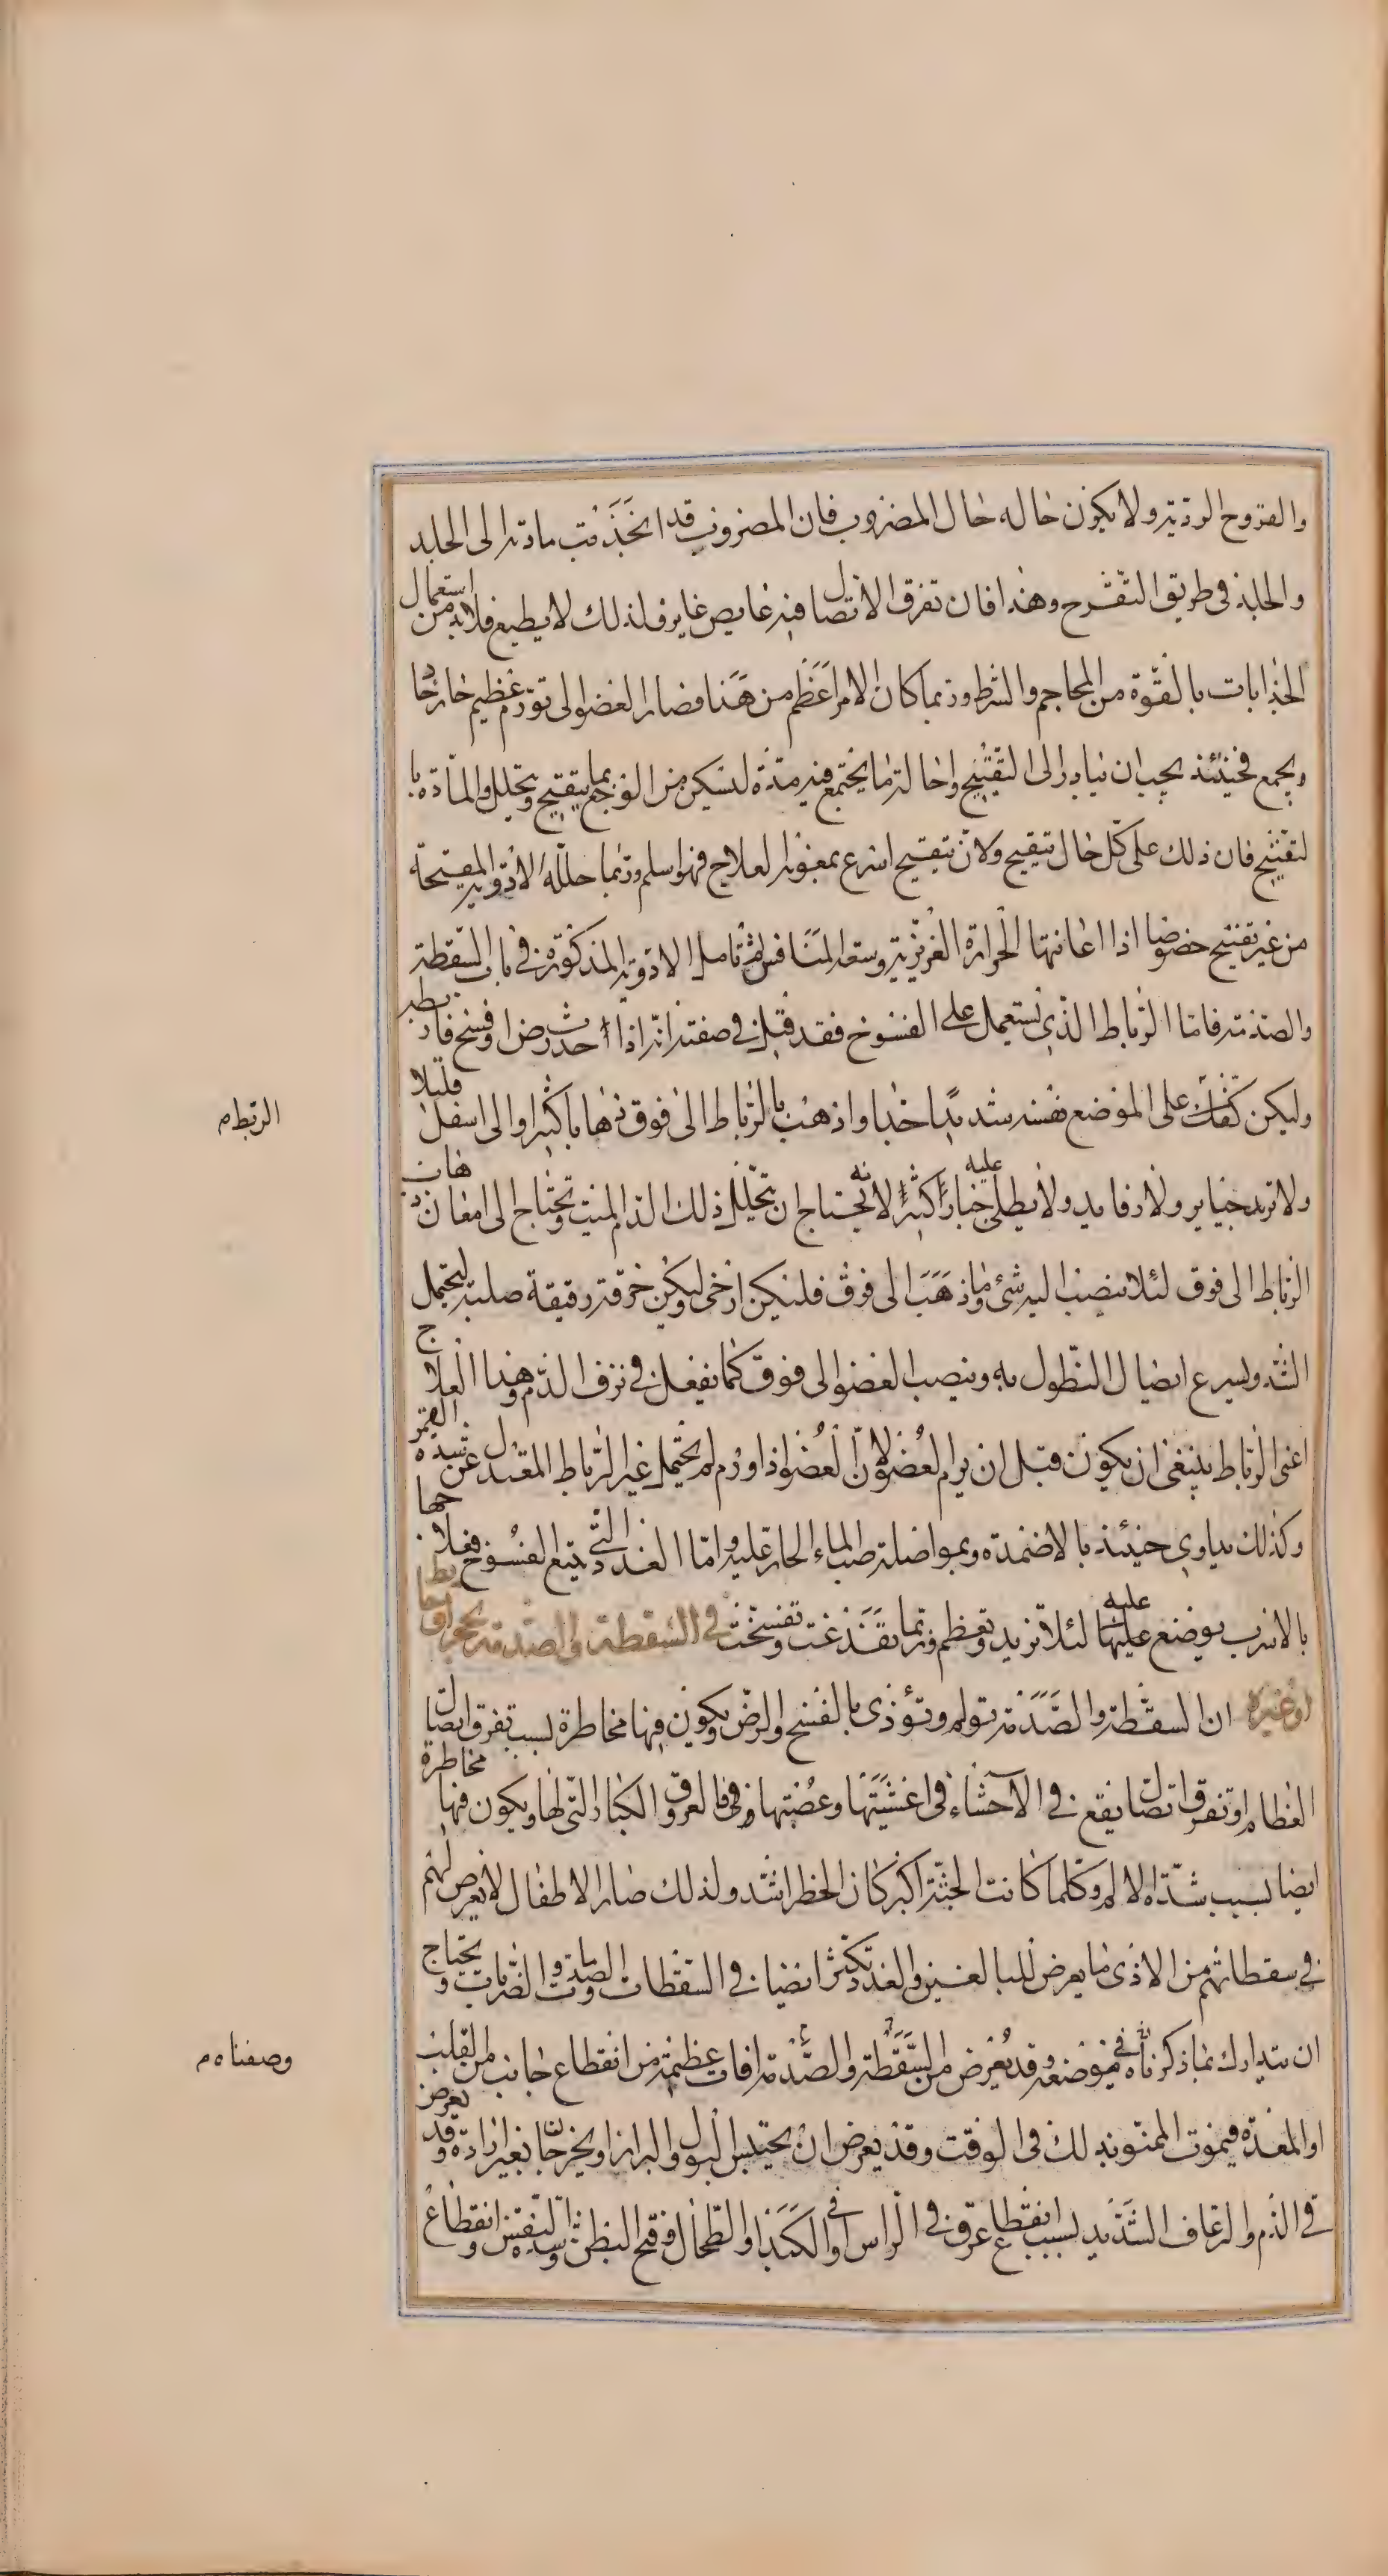 والقروح الردية ولا يكون حاله حال المضروب فان المضروب قد انجذبت مادته الى الجلد
والجلد فى طريق التقرح وهذا فان تفرق الاتصال فيه غايص غاير فلذلك لا يطيع فلا بد من استعمال
الجذابات بالقوة من المحاجم والشرط وربما كان الامر اعظم من هذا فصار العضو الى تورم عظيم خارجا
ويجمع فحينئذ يجب ان يبادر الى التقيح واحالة ما يجتمع فيه مدة لتسكين من الوجع بما يتقيح ويتحلل والمادة با
لتقيح فان ذلك على كل حال يتقيح ولان يتقيح اسرع بمعونة العلاج فهو اسلم وربما حلله الادوية المقيحة
من غير تقيح خصوصا اذا اعانتها الحرارة الغريزية وسعة المنافس ثم تامل الادوية المذكورة فى باب السقطة
والصدمة فاما الرباط الذى يستعمل على الفسوخ فقد قيل فى صفته انه اذا حدث رض او فسخ فاربطه
وليكن كفك على الموضع نفسه شديدا جدا واذهب بالرباط الى فوق ذهابا كثيرا والى اسفل قليلا
ولا تربه جباير ولا رفايد ولا يطلى عليه جبارا كثيرا لانه يحتاج ان يتحلل ذلك الدم الميت وتحتاج الى امعان ذهاب
الرباط الى فوق لئلا ينصب اليه شئ وما ذهب الى فوق فليكن ارخى وليكن خرقة رقيقة صلبة ليحتمل
الشد ويسرع ايصال النطول به وينصب العضو الى فوق كما يفعل فى نزف الدم وهذا العلاج
اعنى الرباط ينبغى ان يكون قبل ان يرم العضو لان العضو اذا ورم لم يحتمل غير الرباط المعتدل عن شده الغمر
وكذلك يداوى حينئذ بالاضمدة وبمواصلة صب الماء الحار عليه واما الغدد التى يتبع الفسوخ فعلاجها
بالاسرب يوضع عليها عليه لئلا تزيد وتعظم وربما تفدغت وتفسخت فى السقطة والصدمة بحجر او حايط
او غيره ان السقطة والصدمة تولم وتؤذى بالفسخ والرض ويكون فيها مخاطرة بسبب تفرق اتصال
العظام او تفرق اتصال يقع فى الاحشاء فى اغشيتها وعصبها وفى العروق الكبار التى لها ويكون فيها مخاطرة
ايضا بسبب شدة الالم وكلما كانت الجثة اكبر كان الخطر اشد ولذلك صار الاطفال لا يعرض لهم
فى سقطاتهم من الاذى ما يعرض للبالغين والغدد تكثر ايضا فى السقطات والصدمات والضربات ويحتاج
ان يتدارك بما ذكرناه فى موضعه وقد يعرض من السقطة والصدمة افات عظيمة من انقطاع جانب من القلب
او المعدة فيموت الممنو بذلك فى الوقت وقد يعرض ان يحتبس البول والبراز او يخرجان بغير ارادة وقد يعرض
قى الدم والرعاف الشديد بسبب انقطاع عرق فى الراس او فى الكبد او الطحال وقيح البطن وشدة النفس وانقطاع
الربط م
وصفناه م